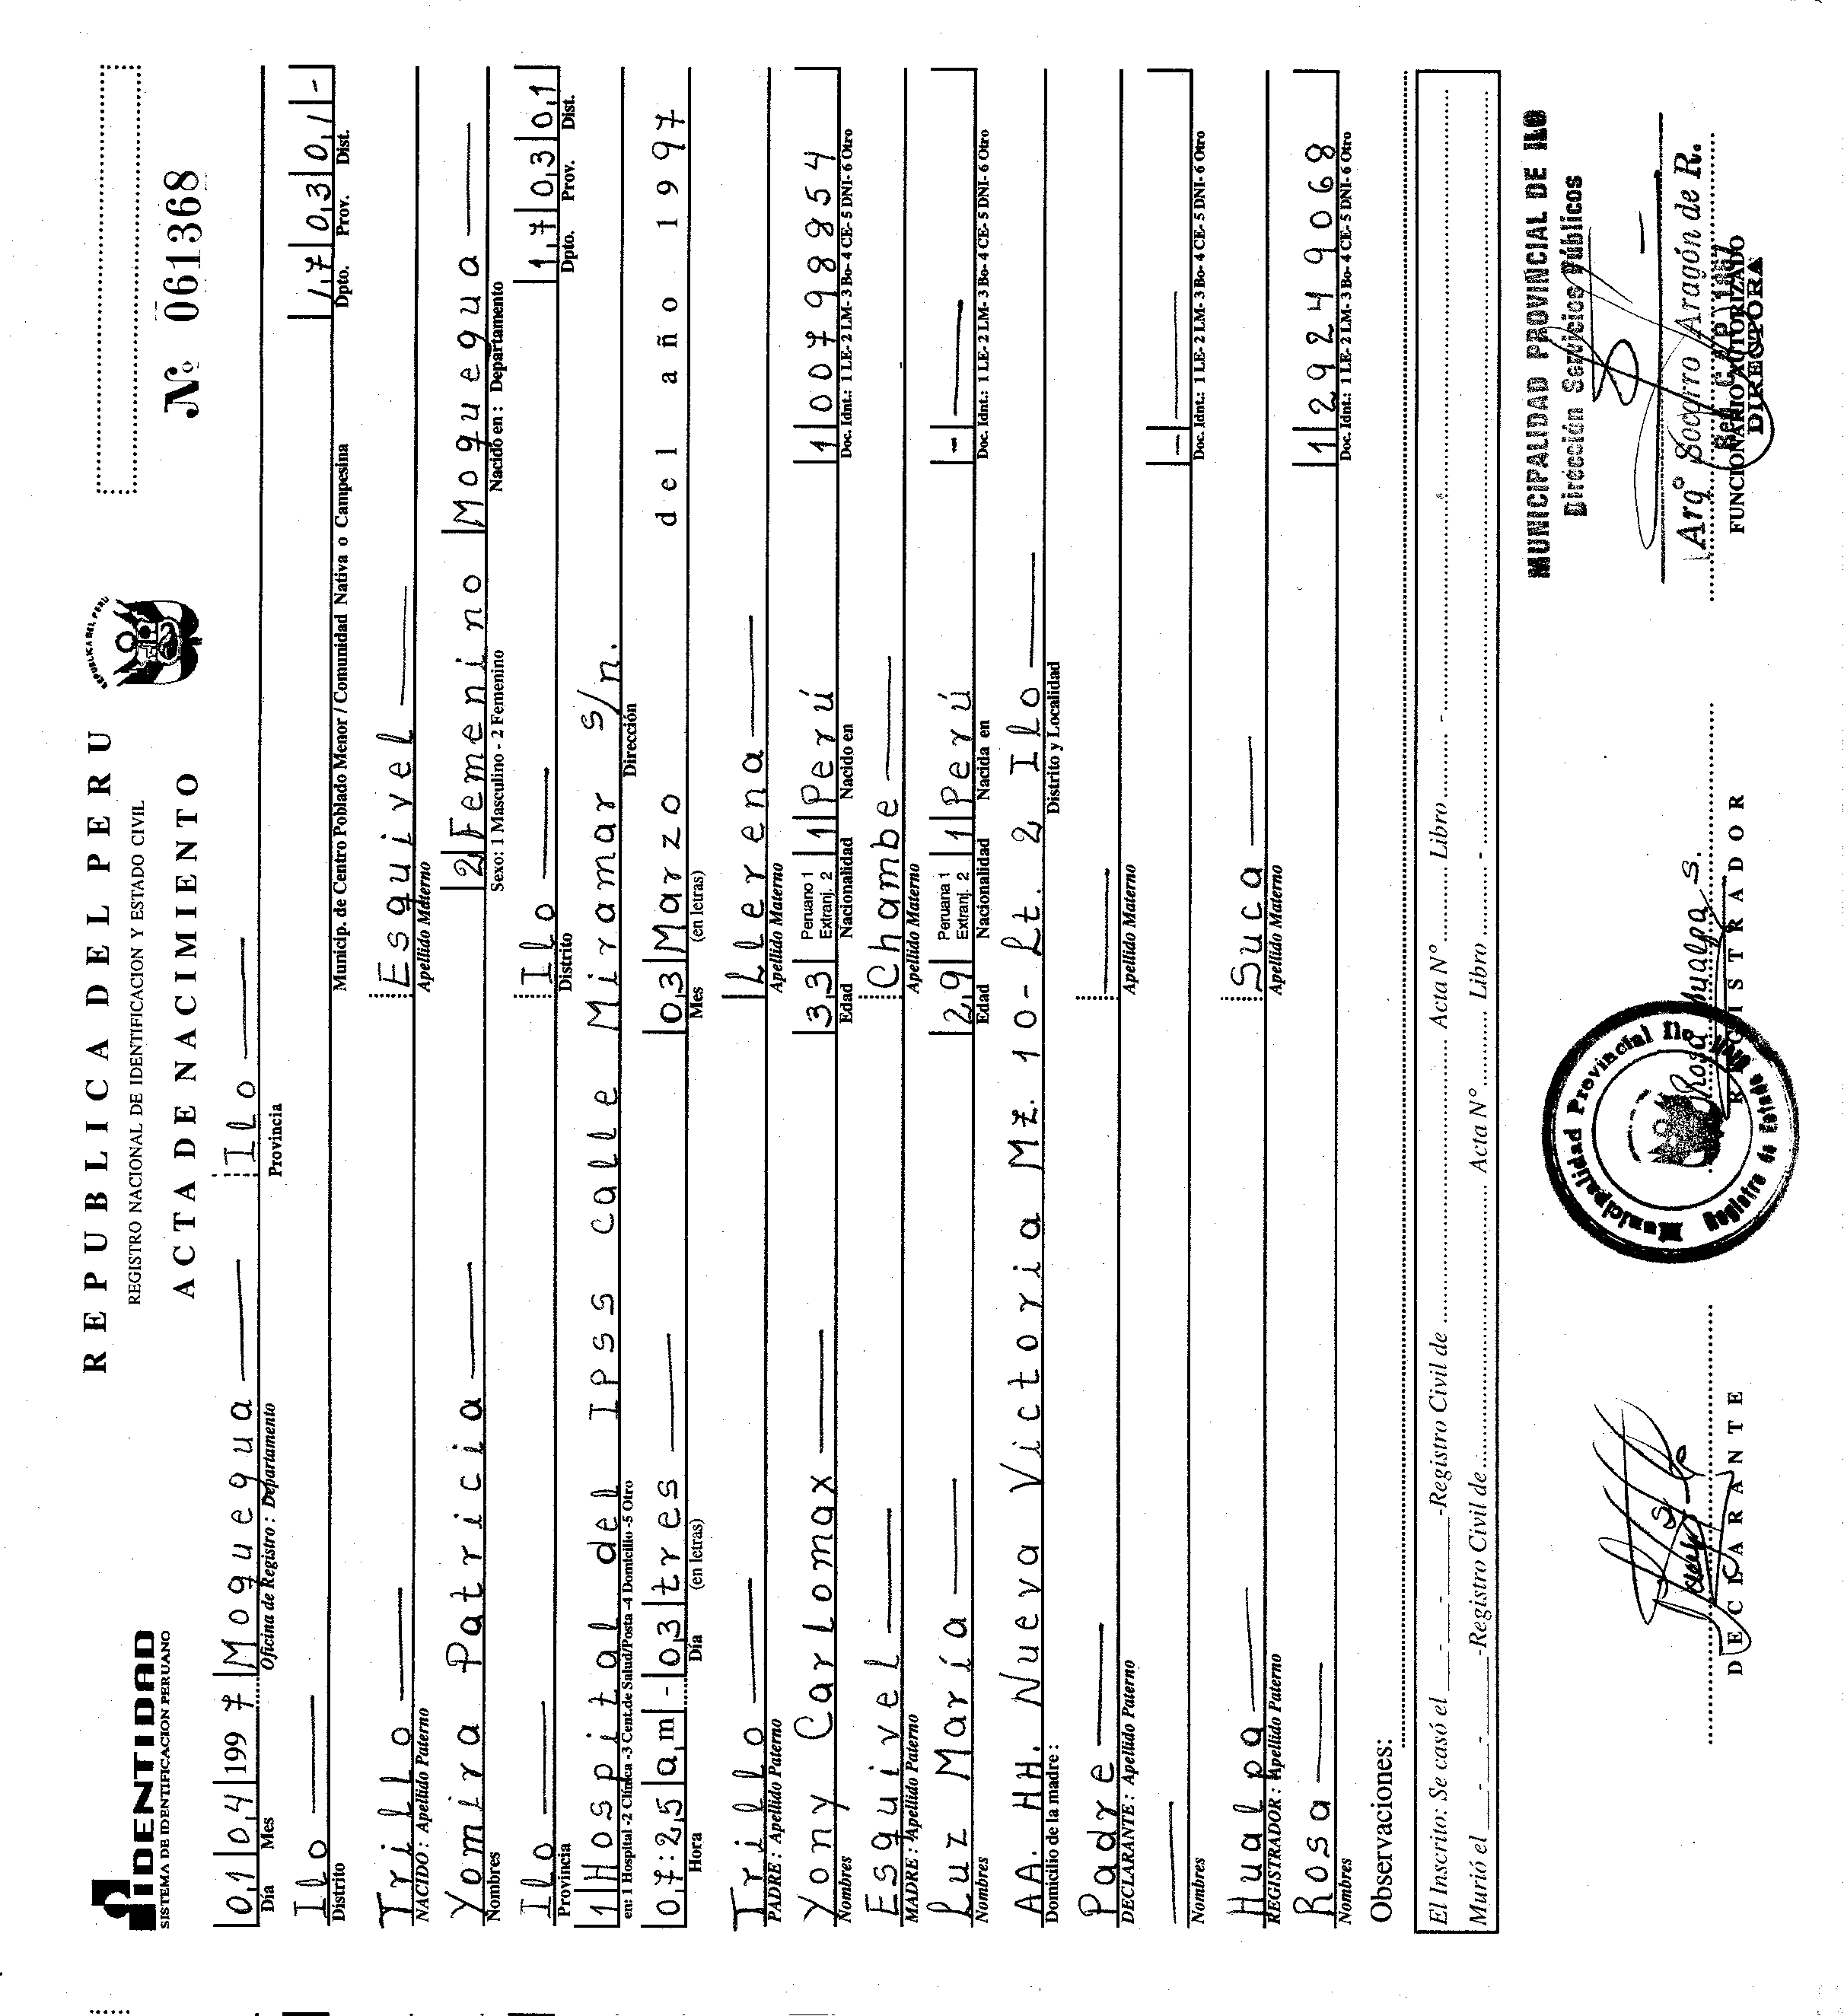 IDENTIDAD
SISTEMA DE IDENTIFICACION PERUANO
REPUBLICA DEL PERU
REGISTRO NACIONAL DE IDENTIFICACION Y ESTADO CIVIL
ACTA DE NACIMIENTO
REPUBLICA DEL PERU
Nº 061368
01 04 1997 Moquegua Ilo
Día Mes Oficina de Registro : Departamento Provincia
Ilo 17 03 01 -
Distrito Municip. de Centro Poblado Menor / Comunidad Nativa o Campesina Dpto. Prov. Dist.
Trillo Esquivel
NACIDO : Apellido Paterno Apellido Materno
Yomira Patricia 2 Femenino Moquegua
Nombres Sexo: 1 Masculino - 2 Femenino Nacido en : Departamento
Ilo Ilo 17 03 01
Provincia Distrito Dpto. Prov. Dist.
1 Hospital del IPSS calle Miramar s/n.
en: 1 Hospital -2 Clínica -3 Cent.de Salud/Posta -4 Domicilio -5 Otro Dirección
07:25 am - 03 tres 03 Marzo del año 1997
Hora Día (en letras) Mes (en letras)
Trillo Llerena
PADRE : Apellido Paterno Apellido Materno
Yony Carlomax 33 Peruano 1 Extranj. 2 1 Perú 1 00798854
Nombres Edad Nacionalidad Nacido en Doc. Idnt.: 1 LE- 2 LM- 3 Bo- 4 CE- 5 DNI- 6 Otro
Esquivel Chambe
MADRE : Apellido Paterno Apellido Materno
Luz María 29 Peruana 1 Extranj. 2 1 Perú - —
Nombres Edad Nacionalidad Nacida en Doc. Idnt.: 1 LE- 2 LM- 3 Bo- 4 CE- 5 DNI- 6 Otro
AA. HH. Nueva Victoria Mz. 10- Lt. 2 Ilo
Domicilio de la madre : Distrito y Localidad
Padre —
DECLARANTE : Apellido Paterno Apellido Materno
— - —
Nombres Doc. Idnt.: 1 LE- 2 LM- 3 Bo- 4 CE- 5 DNI- 6 Otro
Hualpa Suca
REGISTRADOR : Apellido Paterno Apellido Materno
Rosa 1 29249068
Nombres Doc. Idnt.: 1 LE- 2 LM- 3 Bo- 4 CE- 5 DNI- 6 Otro
Observaciones:
El Inscrito: Se casó el - - -Registro Civil de Acta Nº Libro -
Murió el - - -Registro Civil de Acta Nº Libro -
MUNICIPALIDAD PROVINCIAL DE ILO
Dirección Servicios Públicos
Municipalidad Provincial Ilo
Registro de Estado
Rosa Hualpa S.
Arqº Socorro Aragón de R.
DECLARANTE REGISTRADOR FUNCIONARIO AUTORIZADO
DIRECTORA